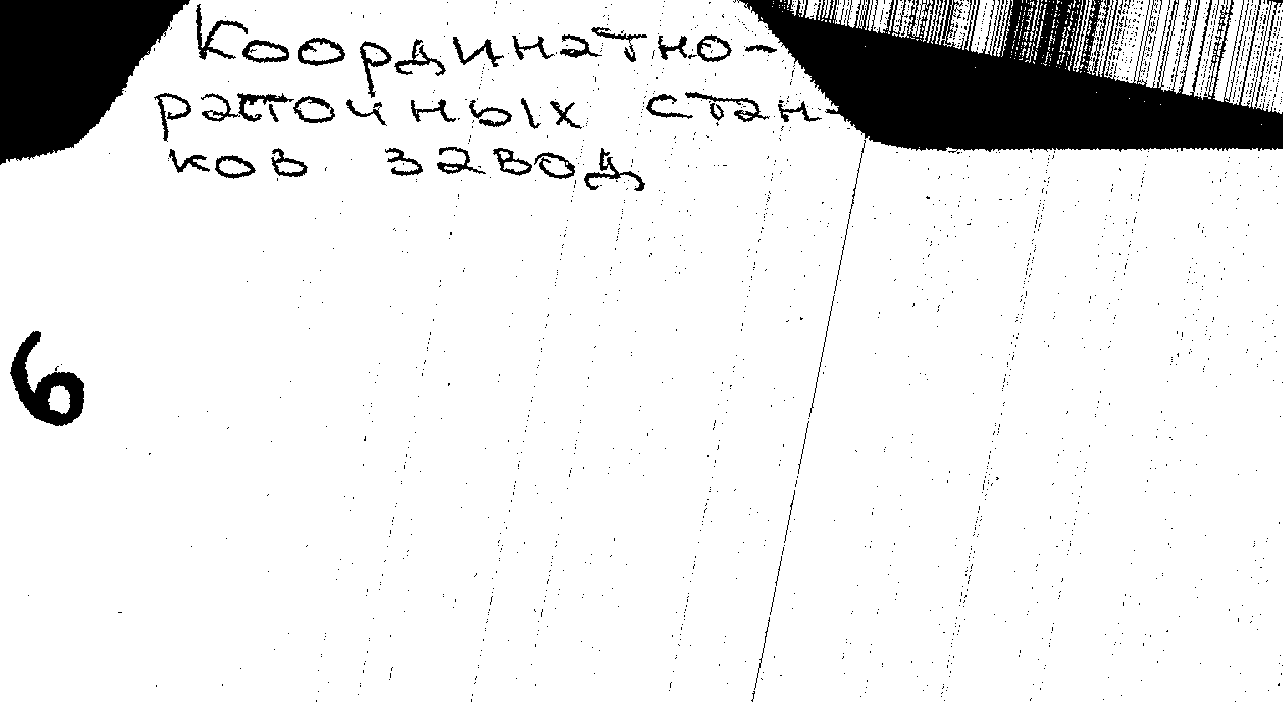 Координатно-
расточных стан-
ков завод
6